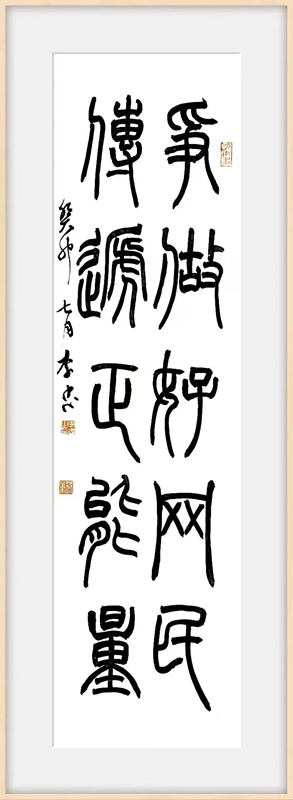 爭做好网民
傳遞正能量
癸卯七月李忠